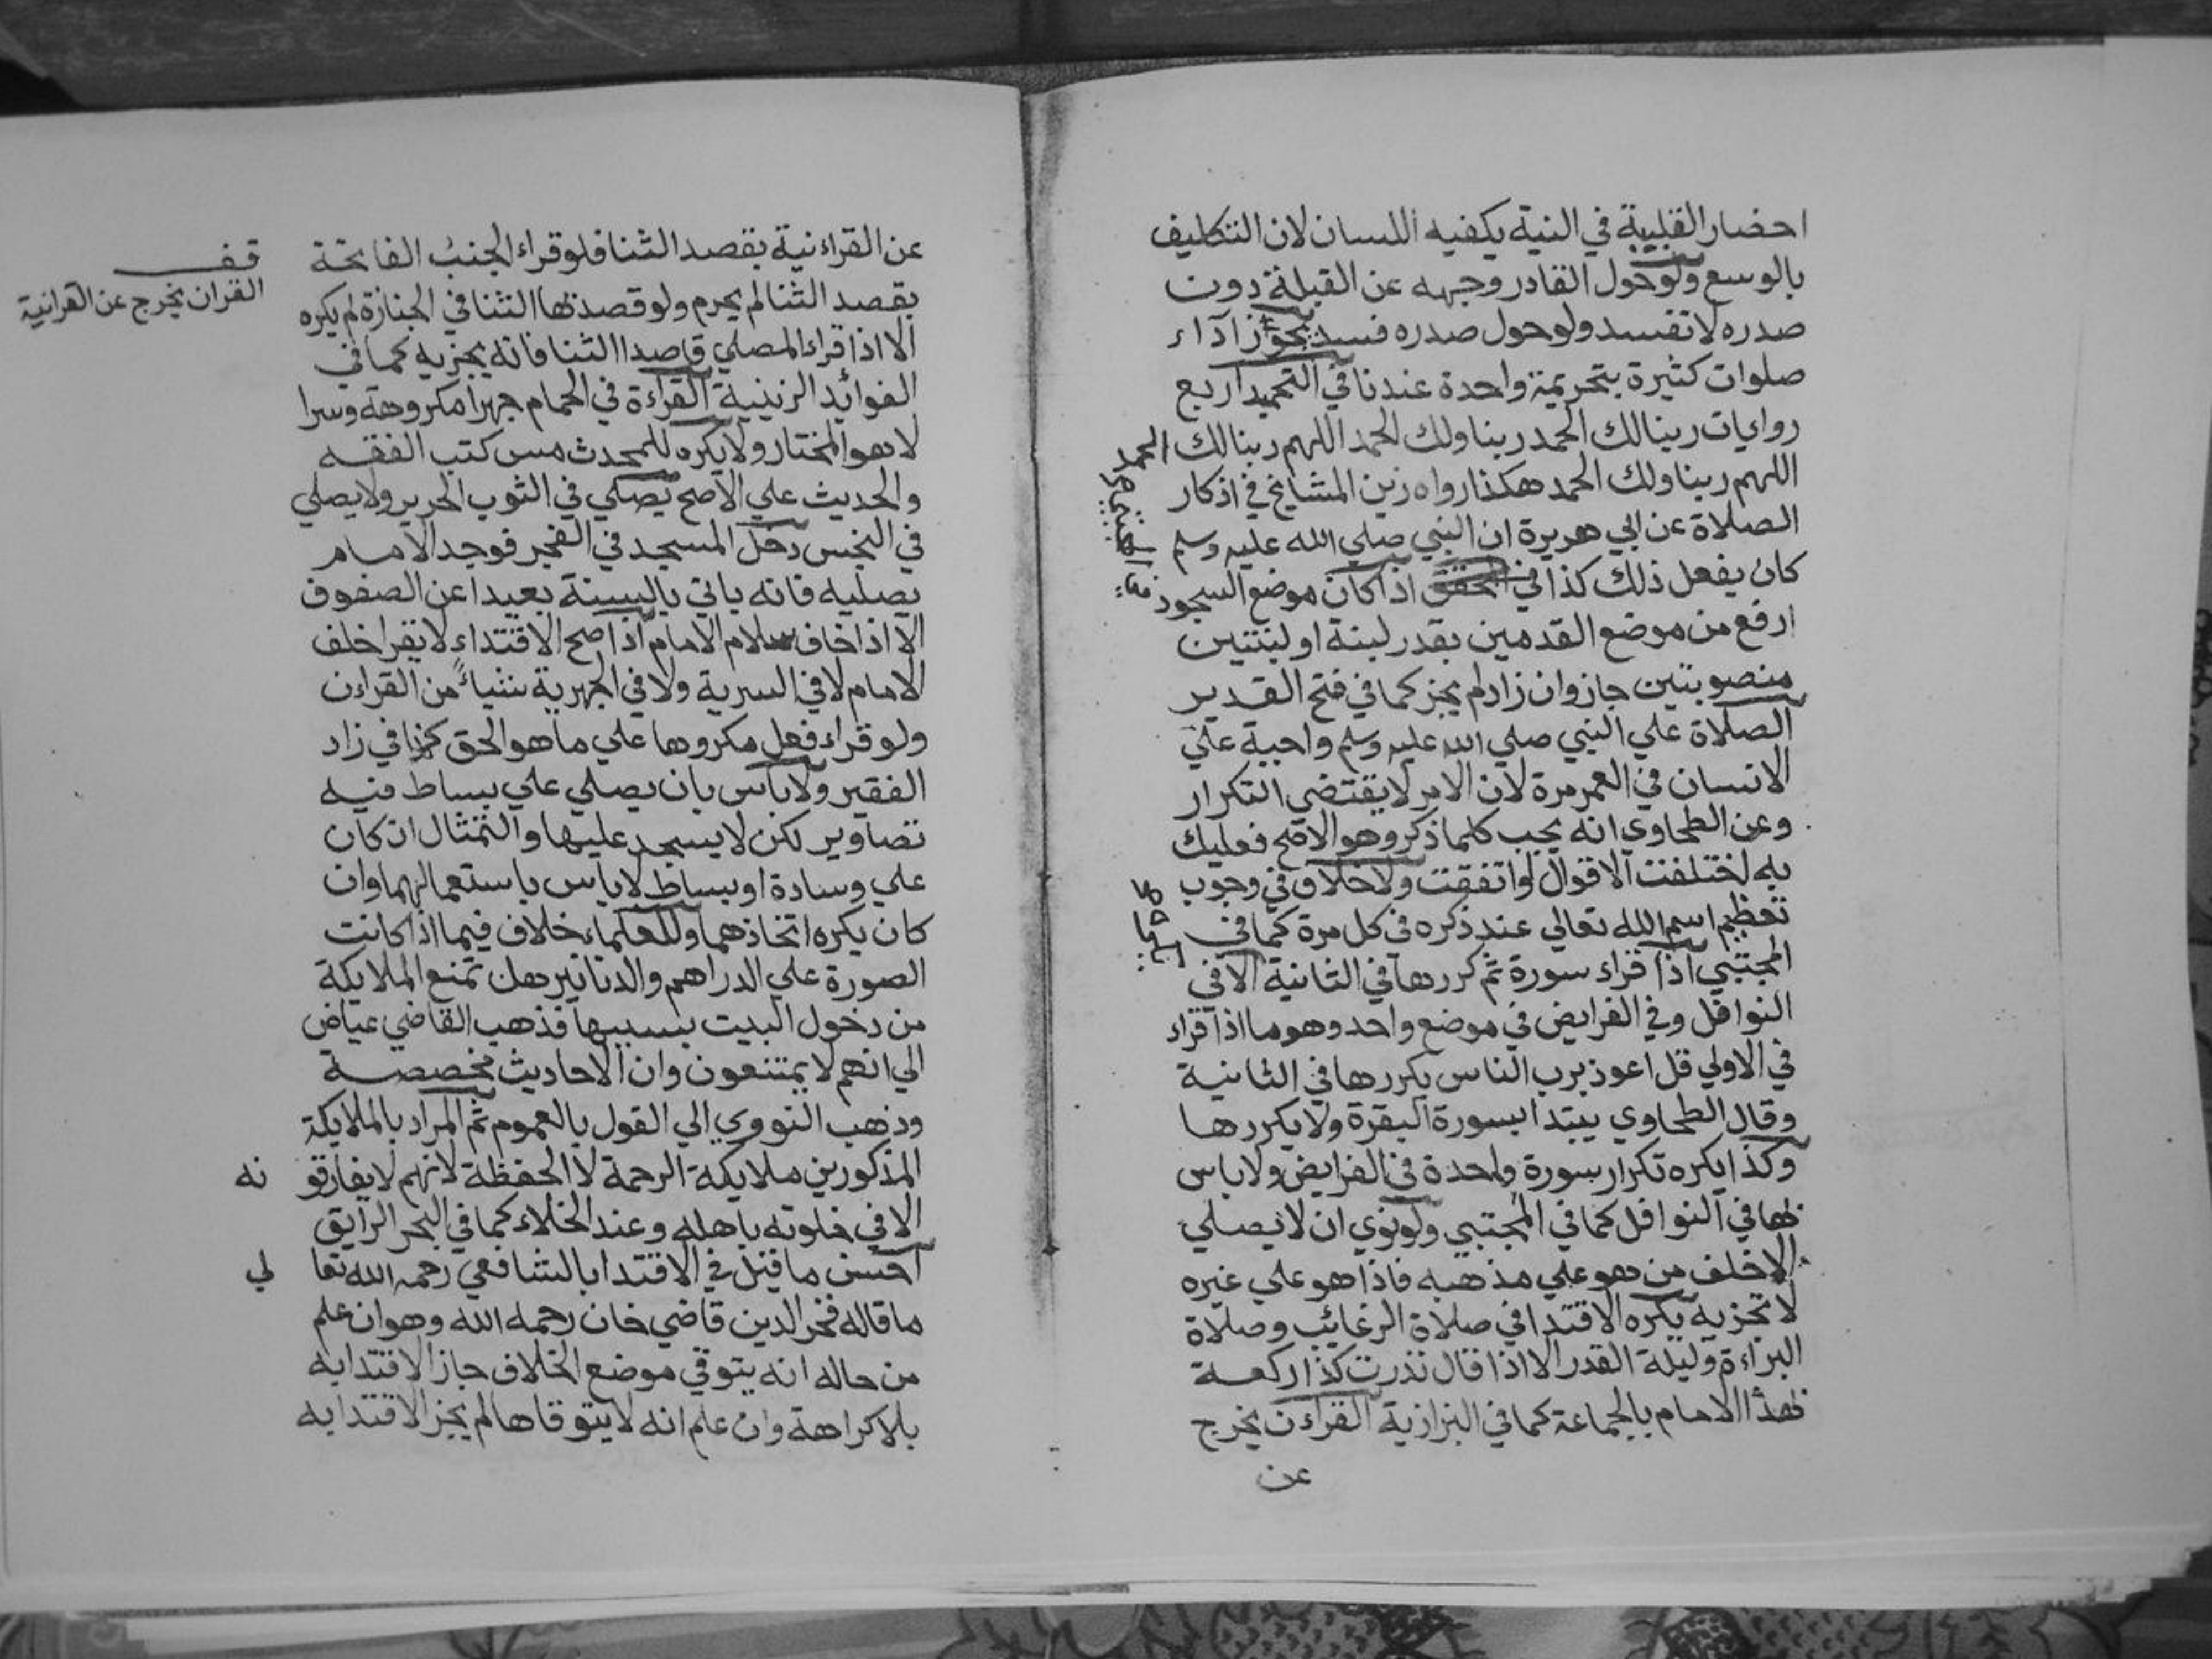 احضار القلبية في النية يكفيه اللسان لان التكليف
بالوسع ولو حول القادر وجهه عن القبلة دون
صدره لا تفسد ولو حول صدره فسد يجوز آداء
صلوات كثيرة بتحريمة واحدة عندنا في التحميد اربع
روايات ربنا لك الحمد ربنا ولك الحمد اللهم ربنا لك الحمد
اللهم ربنا ولك الحمد هكذا رواه زين المشايخ في اذكار
الصلاة عن ابي هريرة ان النبي صلي الله عليه وسلم
كان يفعل ذلك كذا في اذا كان موضع السجود
ارفع من موضع القدمين بقدر لبنة او لبنتين
منصوبتين جاز وان زاد لم يجز كما في فتح القدير
الصلاة علي النبي صلي الله عليه وسلم واجبة علي
الانسان في العمر مرة لان الامر لا يقتضي التكرار
وعن الطحاوي انه يجب كلما ذكر وهو الاصح فعليك
به اختلفت الاقوال او اتفقت ولا خلاف في وجوب
تعظيم اسم الله تعالي عند ذكره في كل مرة كما في
المجتبي اذا قراء سورة ثم كررها في الثانية الا في
النوافل وفي الفرايض في موضع واحد وهو ما اذا قراء
في الاولي قل اعوذ برب الناس يكررها في الثانية
وقال الطحاوي يبتدا بسورة البقرة ولا يكررها
وكذا يكره تكرار سورة واحدة في الفرايض ولا باس
بها في النوافل كما في المجتبي ولو نوي ان لا يصلي
الا خلف من هو علي مذهبه فاذا هو علي غيره
لا تجزيه يكره الاقتدا في صلاة الرغائب وصلاة
البراءة وليلة القدر الا اذا قال نذرت كذا ركعة
بهذا الامام بالجماعة كما في البزازية القراءن يخرج
عن
عن القراءنية بقصد الثنا فلو قراء الجنب الفاتحة
بقصد الثنا لم يحرم ولو قصد بها الثنا في الجنازة لم يكره
الا اذا قراء المصلي قاصدا الثنا فانه يجزيه كما في
الفوائد الزينية القراءة في الحمام جهرا مكروهة وسرا
لا هو المختار ولا يكره للمحدث مس كتب الفقه
والحديث علي الاصح يصلي في الثوب الحرير ولا يصلي
في النجس دخل المسجد في الفجر فوجد الامام
يصليه فانه ياتي بالسنة بعيدا عن الصفوف
الا اذا خاف سلام الامام اذا صح الاقتداء لا يقرا خلف
الامام لا في السرية ولا في الجهرية شياءً من القراءن
ولو قراء فعل مكروها علي ما هو الحق كذا في زاد
الفقير ولا باس بان يصلي علي بساط فيه
تصاوير لكن لا يسجد عليها والتمثال ان كان
علي وسادة او بساط لا باس باستعمالهما وان
كان يكره اتخاذهما وللعلماء خلاف فيما اذا كانت
الصورة علي الدراهم والدنانير هل تمنع الملايكة
من دخول البيت بسببها فذهب القاضي عياض
الي انهم لا يمتنعون وان الاحاديث مخصصة
وذهب النووي الي القول بالعموم ثم المراد بالملايكة
المذكورين ملايكة الرحمة لا الحفظة لانهم لا يفارقو نه
الا في خلوته باهله وعند الخلاء كما في البحر الرايق
احسن ما قيل في الاقتدا بالشافعي رحمه الله تعا لي
ما قاله فخر الدين قاضي خان رحمه الله وهو ان علم
من حاله انه يتوقي موضع الخلاف جاز الاقتدا به
بلا كراهة وان علم انه لا يتوقاها لم يجز الاقتدا به
قف
القران يخرج عن القرانية